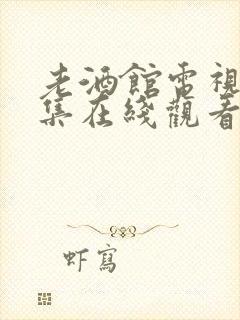 老酒館電視
集在綫觀看
虾寫